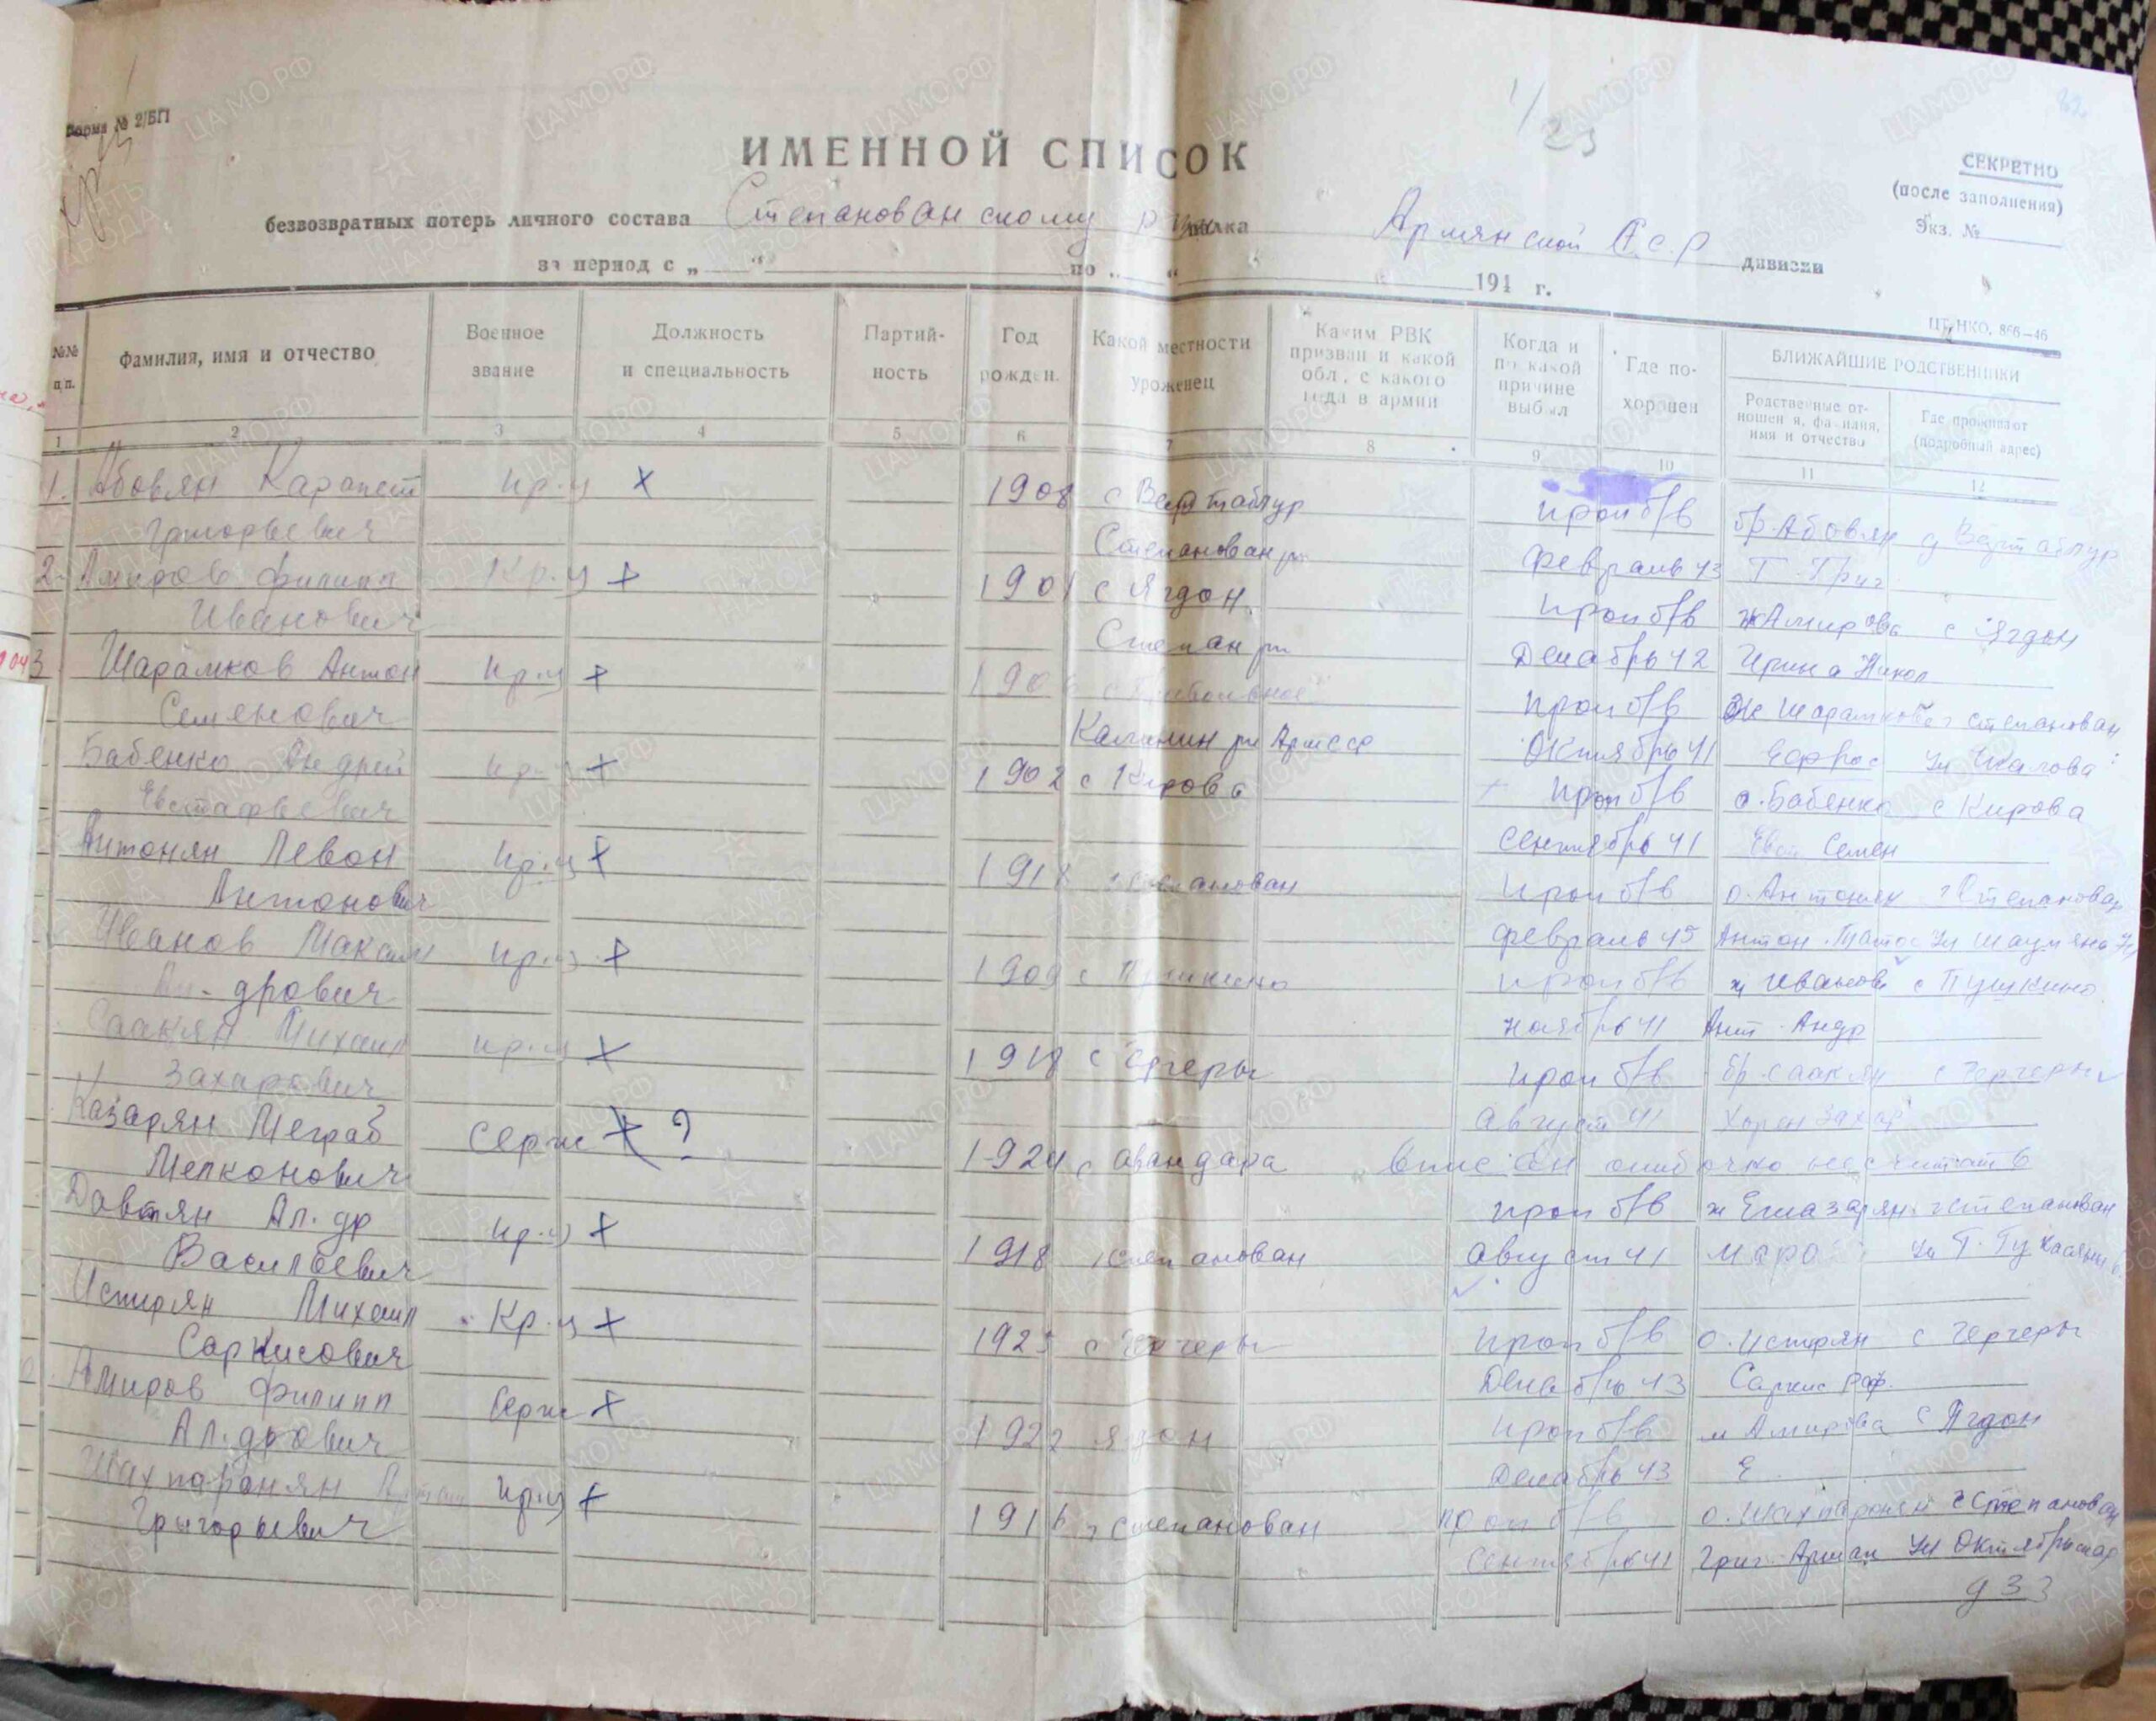 Форма № 2/БП
1/23
ИМЕННОЙ СПИСОК
СЕКРЕТНО
(после заполнения)
Экз. №
безвозвратных потерь личного состава Степанованскому полка Армянской ССР дивизии
за период с „ “ по „ “ 194 г.
№№ п.п.
Фамилия, имя и отчество
Военное звание
Должность и специальность
Партийность
Год рожден.
Какой местности уроженец
Каким РВК призван и какой обл., с какого года в армии
Когда и по какой причине выбыл
Где похоронен
БЛИЖАЙШИЕ РОДСТВЕННИКИ
Родственные отношения, фамилия, имя и отчество
Где проживают (подробный адрес)
1 2 3 4 5 6 7 8 9 10 11 12
1. Абовян Карапет кр-ц х 1908 с Вартаблур проп б/в бр. Абовян с Вартаблур
Григорьевич Степанован рн февраль 43 Т. Григ
2. Амиров Филипп Кр-ц + 1901 с Ягдон проп б/в ж Амирова с Ягдон
Иванович Степан рн Декабрь 42 Ирина Никол
3 Шарамков Антон кр-ц + 190 с Привольное проп б/в ж Шарамкова г Степанован
Семенович Калинин рн Арм ССР Октябрь 41 Ефрос ул Чкалова
Бабенко Андрей кр-ц + 1902 с Кирова проп б/в о. Бабенко с Кирова
Евстафьевич сентябрь 41 Семен
Антонян Левон кр-ц + 1918 г Степанован проп б/в о. Антонян г Степанован
Антонович февраль 45 Антон ул Шаумяна
Иванов Максим кр-ц + 1909 с Пушкино проп б/в ж Иванова с Пушкино
Ал-дрович ноябрь 41 Ант. Андр
Саакян Михаил кр-ц + 1918 с Гергеры проп б/в бр. Саакян с Гергеры
Захарович Август 41 Хорен Захар
Казарян Меграб Серж + ? 1924 с Овандара вписан ошибочно не считать
Мелконович
Давтян Ал. др кр-ц + 1918 г Степанован проп б/в ж Егиазарян г Степанован
Васильевич Август 41 Маро ул Т.
Истирян Михаил Кр-ц + 1925 с Гергеры проп б/в о. Истирян с Гергеры
Саркисович Декабрь 43 Саркис Раф.
Амиров Филипп Серж + 1922 Ягдон проп б/в м Амирова с Ягдон
Ал. дрович Декабрь 43 Е
Шахпаронян кр-ц + 1916 г Степанован проп б/в о. Шахпаронян г Степанован
Григорьевич Сентябрь 41 Григ ул Октябрьская
д 33